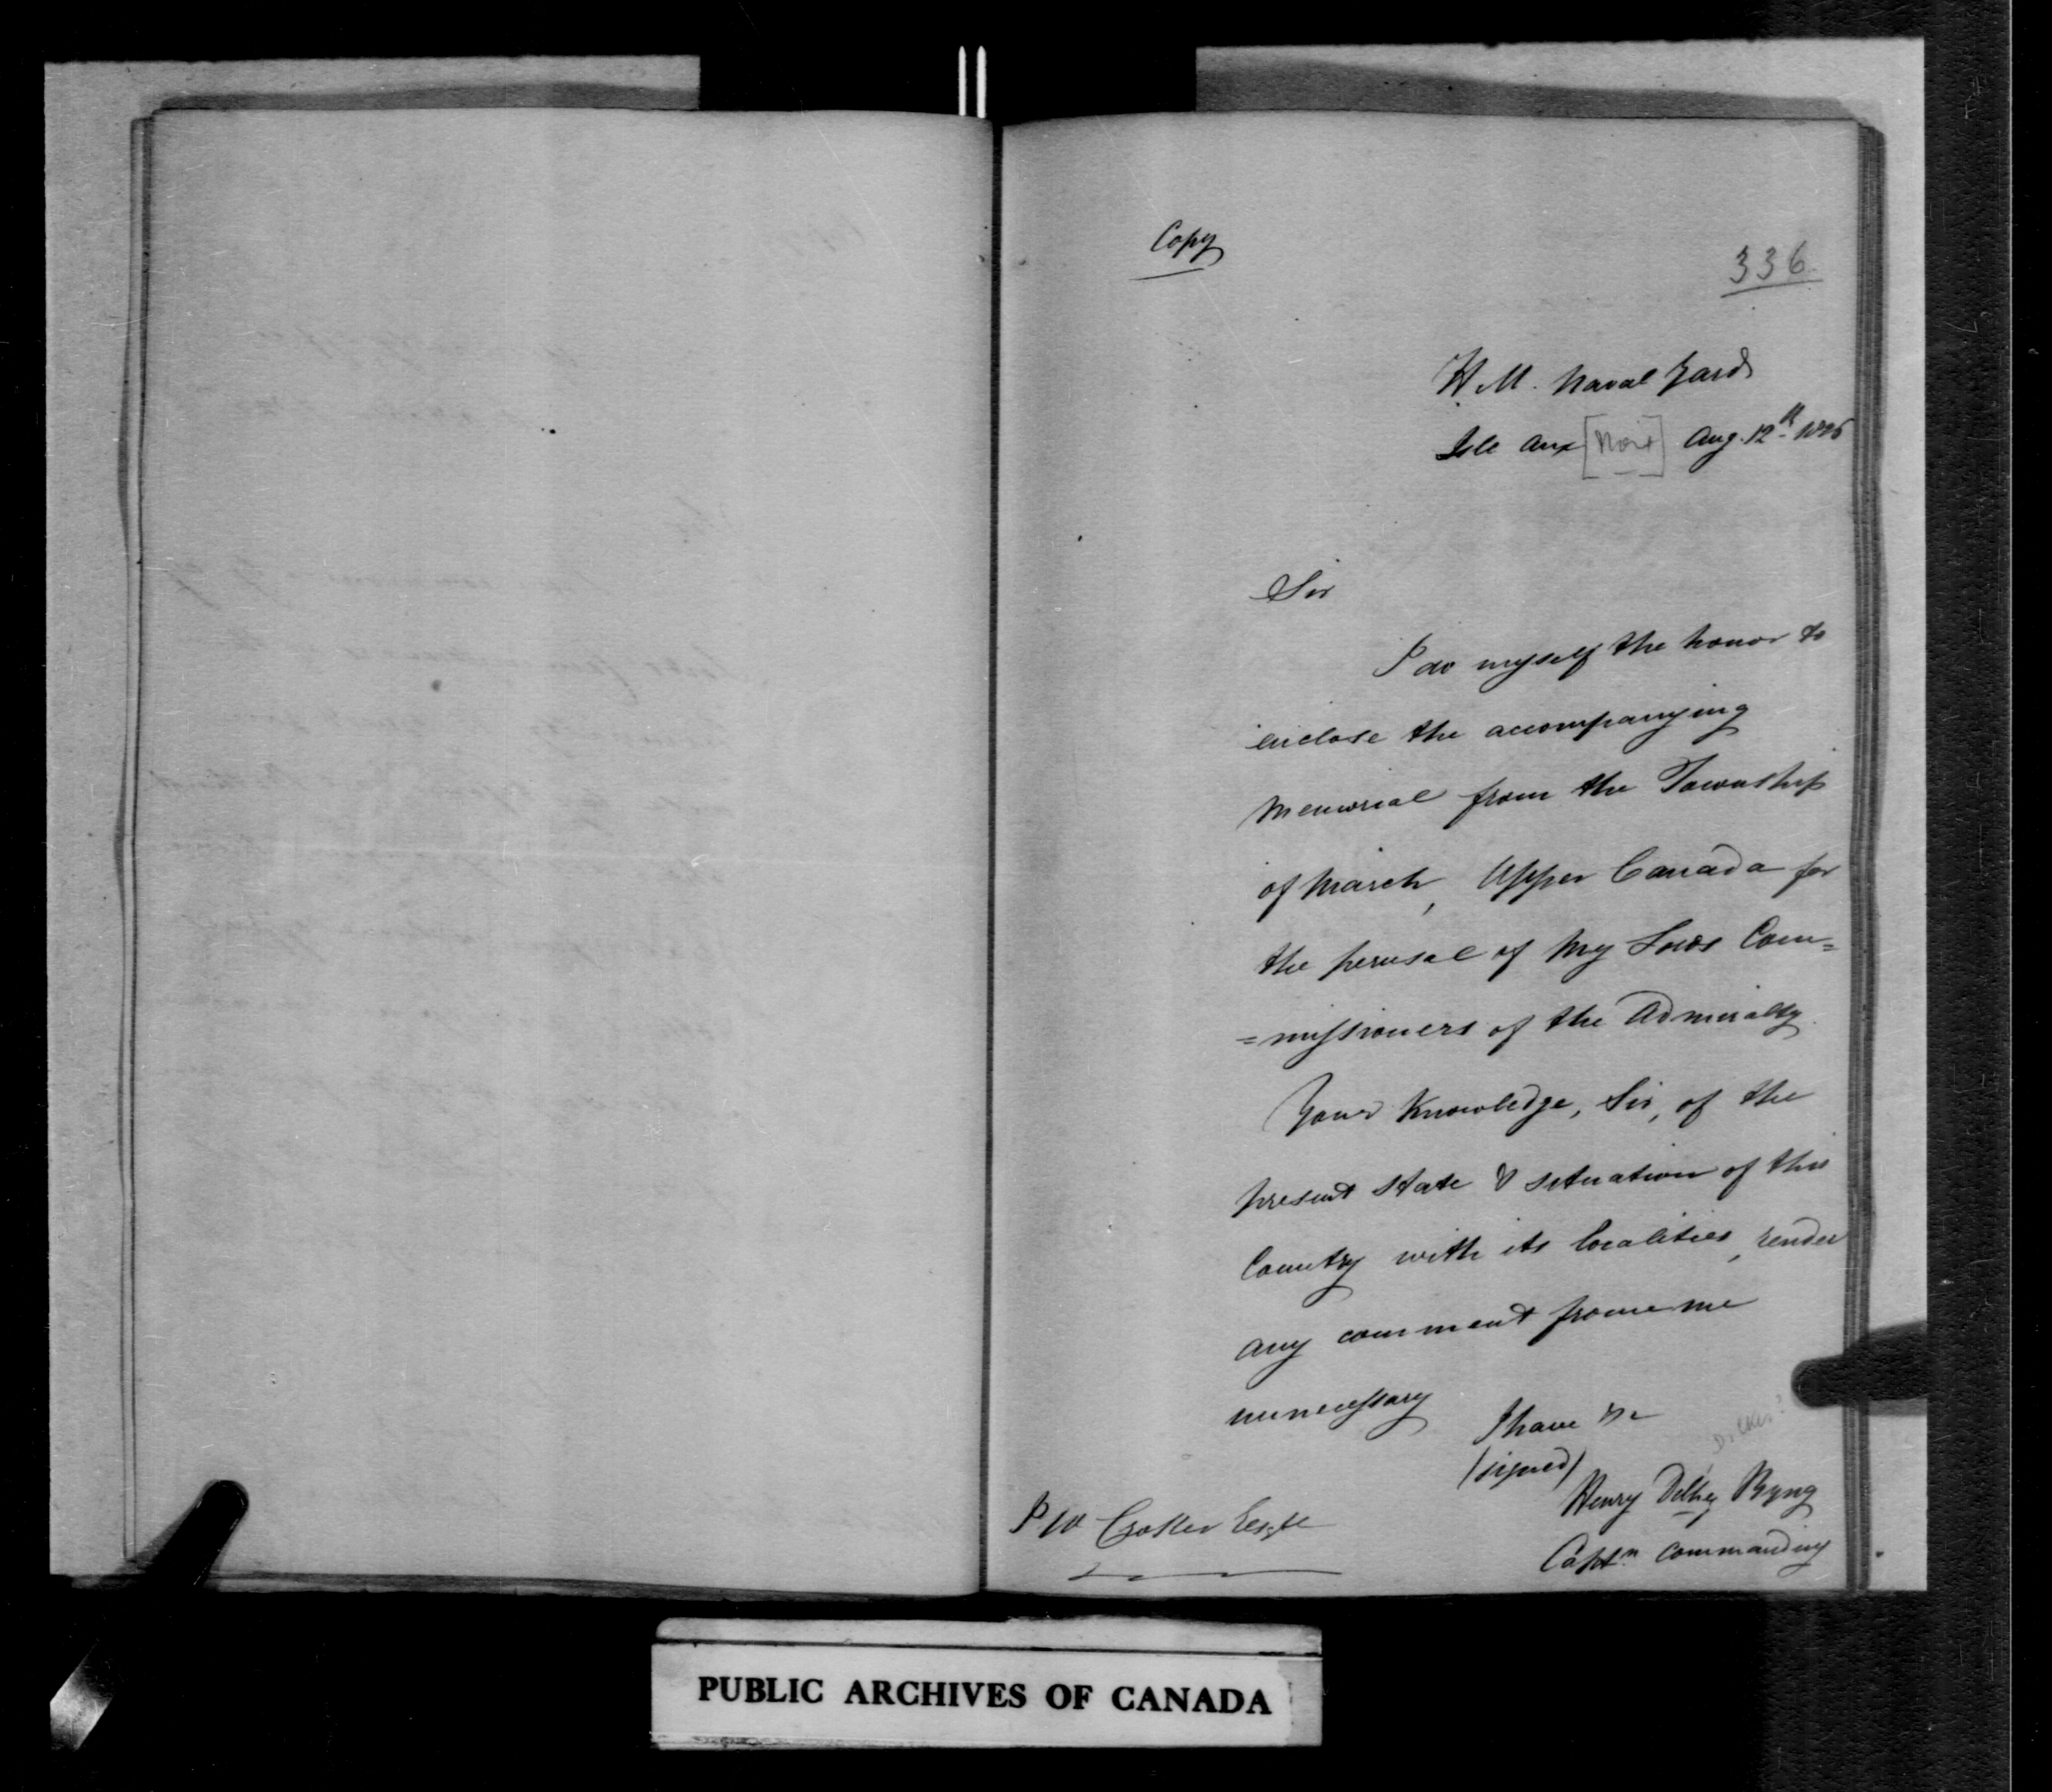 Copy
336
H.M. Naval Yard
Isle aux [Noix] Aug. 12th
Sir
I do myself the honor to
enclose the accompanying
Memorial from the Township
of March, Upper Canada for
the perusal of My Lords Com=
=missioners of the Admiralty.
Your Knowledge, Sir, of the
present state & situation of this
Country with its localities, render
any comment from me
unnecessary
I have &c
(signed)
Henry Byng
Captn. Commanding
J W Croker Esqre
PUBLIC ARCHIVES OF CANADA